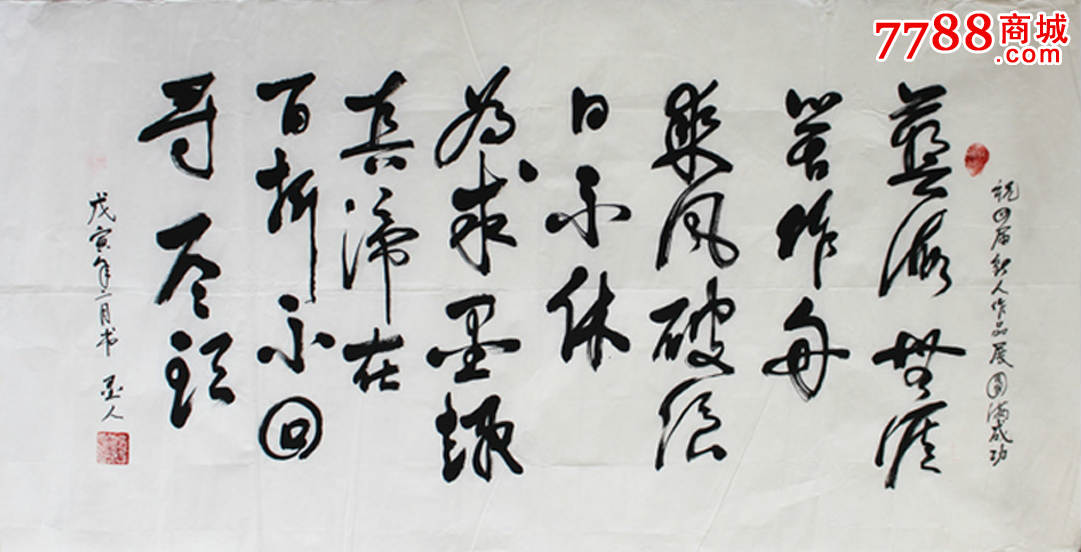 7788商城
.com
祝四届新人作品展圆满成功
藝海無涯
苦作舟
乘风破浪
日不休
为求墨
真谛在
百折不回
寻尽頭
戊寅年二月书 墨人